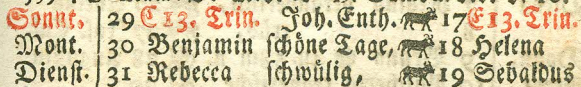 Sonnt. 29 E 13. Trin. Joh. Enth. 17 E 13. Trin.
Mont. 30 Benjamin schöne Tage, 18 Helena
Dienst. 31 Rebecca schwülig, 19 Sebaldus